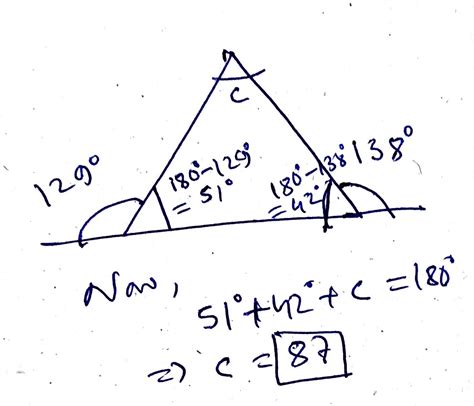 C
129°
180°-129°
= 51°
180°-138°
= 42°
138°
Now,
51°+42°+c = 180°
=> c = 87